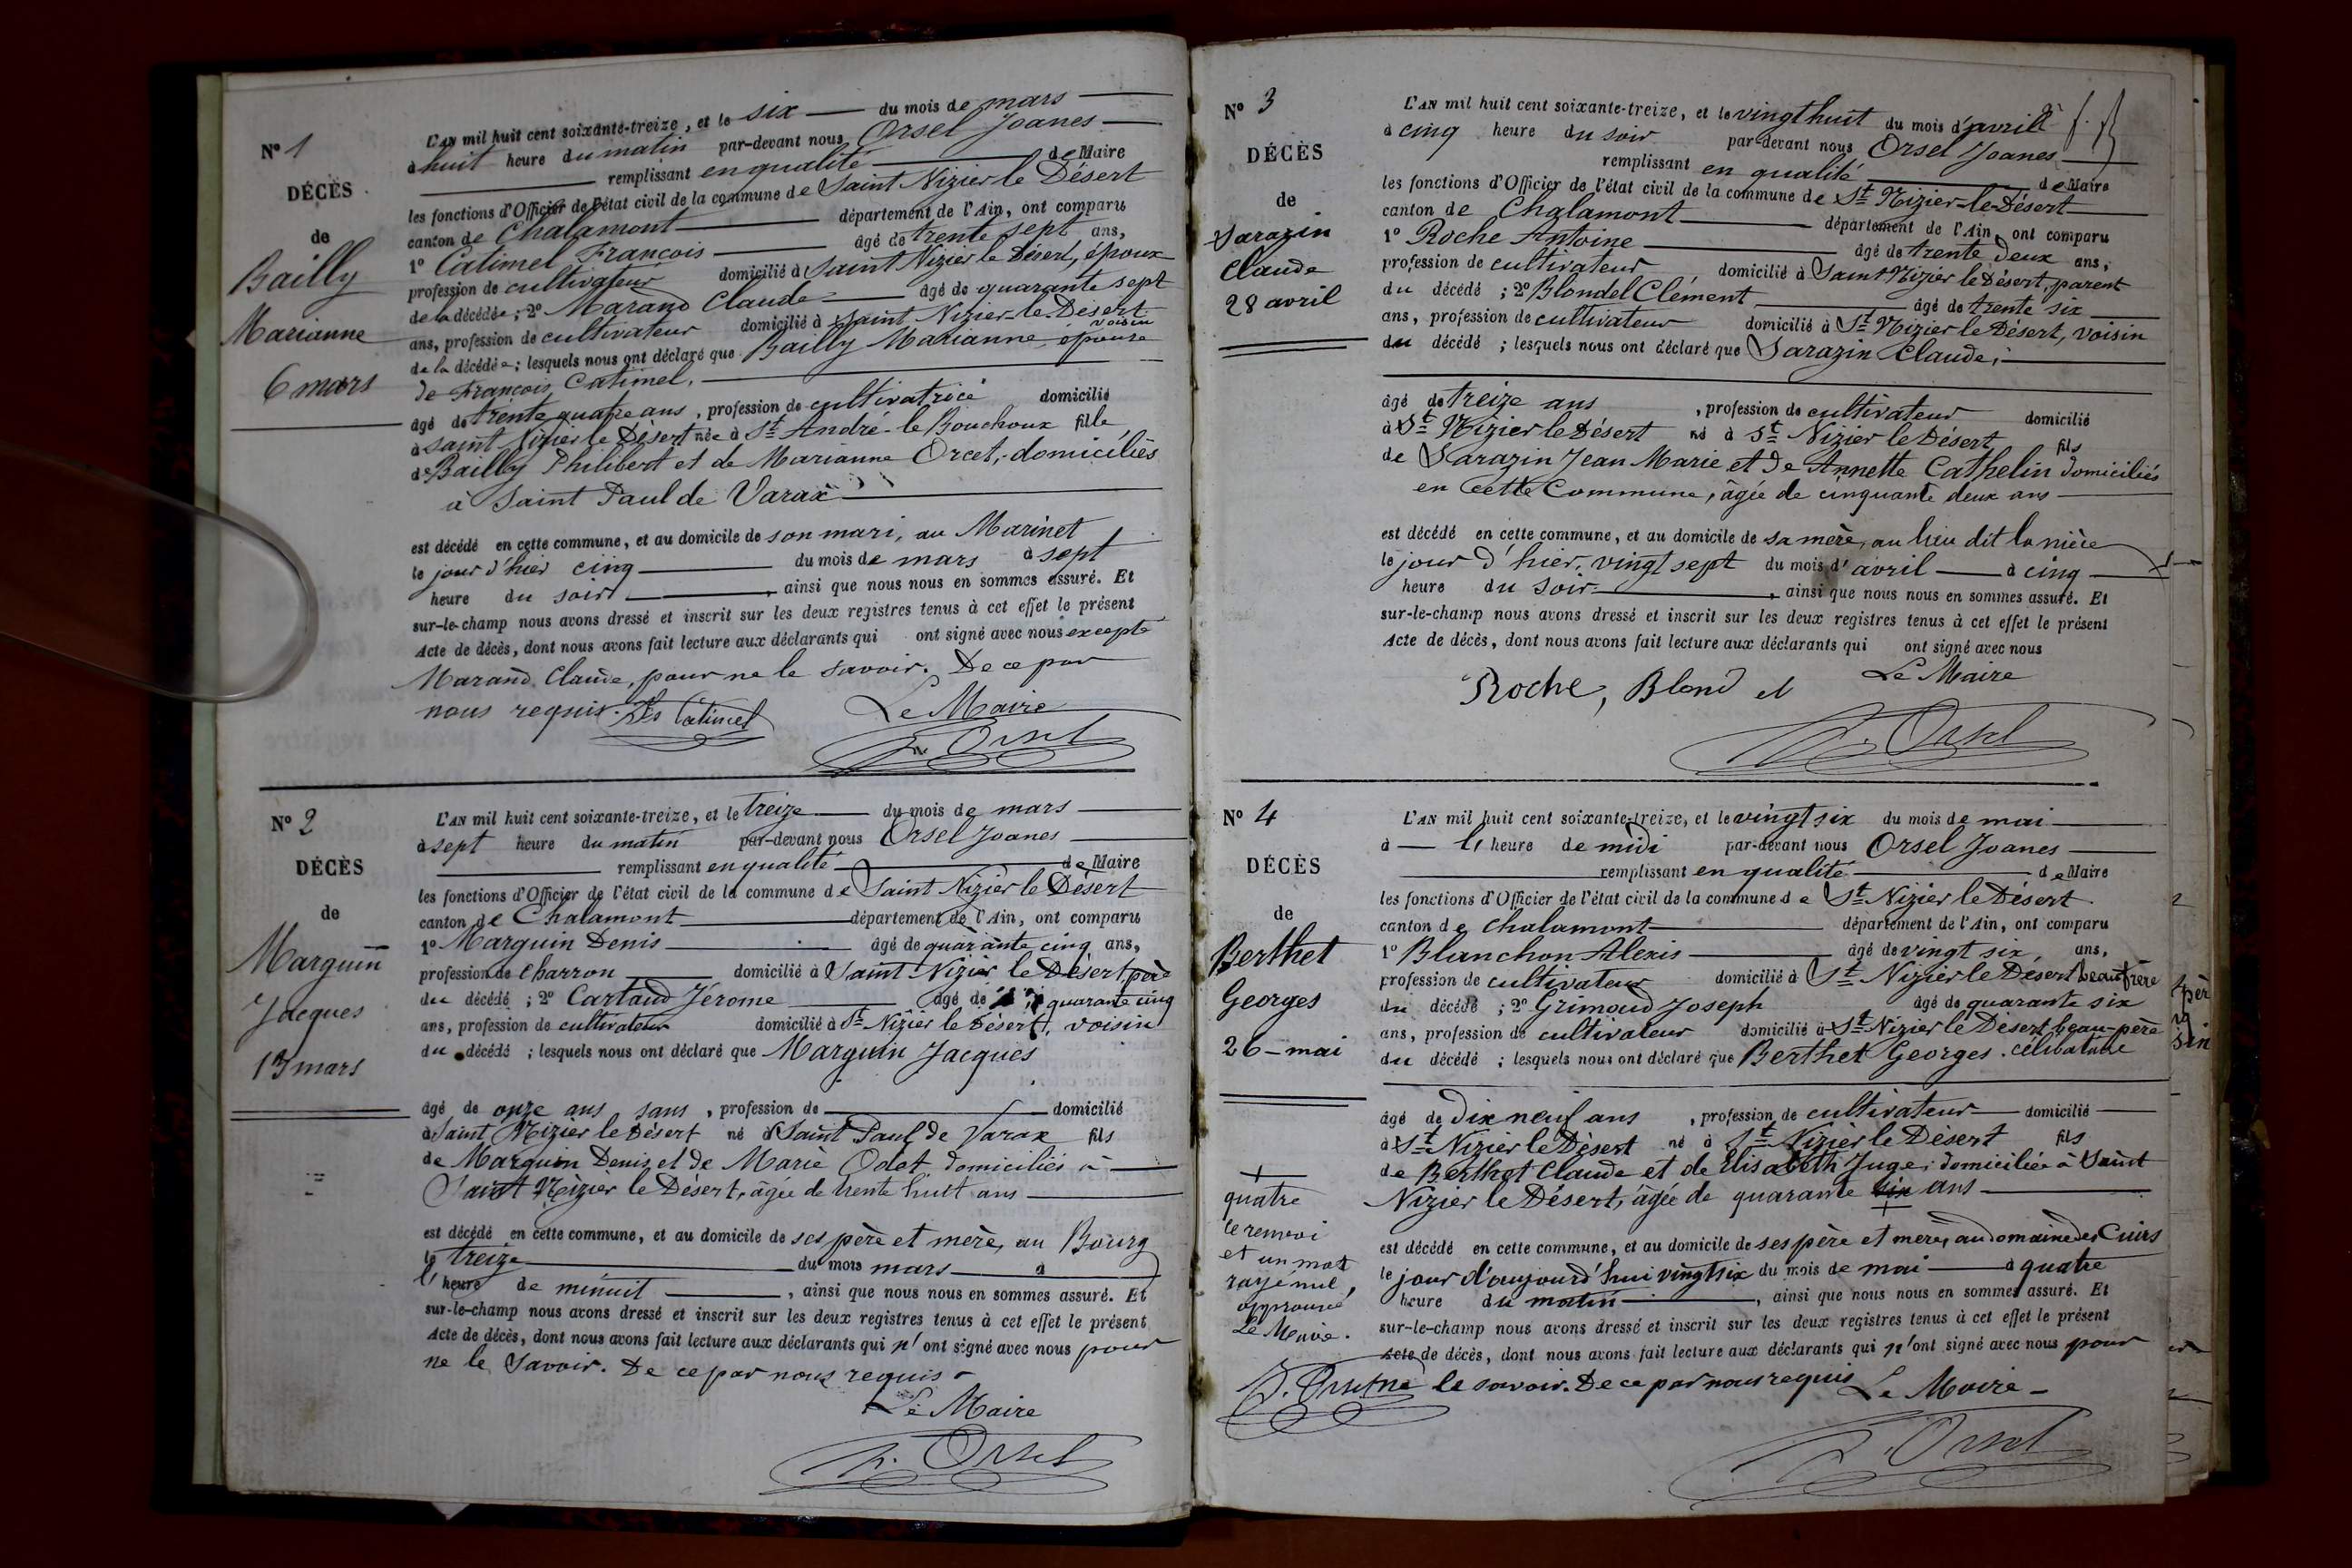 N° 1
DÉCÈS
de
Bailly
Marianne
6 mars
L'AN mil huit cent soixante-treize, et le six du mois de mars
à huit heure du matin par-devant nous Orsel Joanes
remplissant en qualité de Maire
les fonctions d'Officier de l'état civil de la commune de Saint Nizier le Désert
canton de Chalamont département de l'Ain, ont comparu
1° Catimel François âgé de trente sept ans,
profession de cultivateur domicilié à Saint Nizier le Désert, époux
de la décédée ; 2° Marand Claude âgé de quarante sept
ans, profession de cultivateur domicilié à Saint Nizier-le Désert voisin
de la décédée ; lesquels nous ont déclaré que Bailly Marianne épouse
de François Catimel,
âgé de trente quatre ans, profession de cultivatrice domicilié
à Saint Nizier le Désert née à St André-le Bouchoux fille
de Bailly Philibert et de Marianne Orcet, domiciliés
à Saint Paul de Varax
est décédé en cette commune, et au domicile de son mari, au Marinet
le jour d'hier cinq du mois de mars à sept
heure du soir, ainsi que nous nous en sommes assuré. Et
sur-le-champ nous avons dressé et inscrit sur les deux registres tenus à cet effet le présent
Acte de décès, dont nous avons fait lecture aux déclarants qui ont signé avec nous excepté
Marand Claude, pour ne le savoir. De ce par
nous requis. Catimel Le Maire
J. Orsel
N° 2
DÉCÈS
de
Marguin
Jacques
13 mars
L'AN mil huit cent soixante-treize, et le treize du mois de mars
à sept heure du matin par-devant nous Orsel Joanes
remplissant en qualité de Maire
les fonctions d'Officier de l'état civil de la commune de Saint Nizier le Désert
canton de Chalamont département de l'Ain, ont comparu
1° Marguin Denis âgé de quarante cinq ans,
profession de charron domicilié à Saint-Nizier le Désert, père
du décédé ; 2° Cartaud Jérome âgé de quarante cinq
ans, profession de cultivateur domicilié à St Nizier le Désert, voisin
du décédé ; lesquels nous ont déclaré que Marguin Jacques
âgé de onze ans sans, profession de domicilié
à Saint Nizier le Désert né à Saint Paul de Varax fils
de Marguin Denis et de Marie Odet domiciliés à
Saint Nizier le Désert, âgée de trente huit ans
est décédé en cette commune, et au domicile de ses père et mère, au Bourg
le treize du mois mars à
l'heure de minuit, ainsi que nous nous en sommes assuré. Et
sur-le-champ nous avons dressé et inscrit sur les deux registres tenus à cet effet le présent
Acte de décès, dont nous avons fait lecture aux déclarants qui n'ont signé avec nous pour
ne le savoir. De ce par nous requis
Le Maire
J. Orsel
N° 3
DÉCÈS
de
Sarazin
Claude
28 avril
L'AN mil huit cent soixante-treize, et le vingt huit du mois d'avril
à cinq heure du soir par-devant nous Orsel Joanes
remplissant en qualité de Maire
les fonctions d'Officier de l'état civil de la commune de St Nizier-le-Désert
canton de Chalamont département de l'Ain, ont comparu
1° Roche Antoine âgé de trente deux ans,
profession de cultivateur domicilié à Saint Nizier le Désert, parent
du décédé ; 2° Blondel Clément âgé de trente six
ans, profession de cultivateur domicilié à St Nizier le Désert, voisin
du décédé ; lesquels nous ont déclaré que Sarazin Claude,
âgé de treize ans, profession de cultivateur domicilié
à St Nizier le Désert né à St Nizier le Désert fils
de Sarazin Jean Marie et de Annette Cathelin domiciliés
en cette Commune, âgée de cinquante deux ans
est décédé en cette commune, et au domicile de sa mère, au lieu dit la nière
le jour d'hier, vingt sept du mois d'avril à cinq
heure du soir, ainsi que nous nous en sommes assuré. Et
sur-le-champ nous avons dressé et inscrit sur les deux registres tenus à cet effet le présent
Acte de décès, dont nous avons fait lecture aux déclarants qui ont signé avec nous
Roche, Blond el Le Maire
J. Orsel
N° 4
DÉCÈS
de
Berthet
Georges
26-mai
L'AN mil huit cent soixante-treize, et le vingt six du mois de mai
à l'heure de midi par-devant nous Orsel Joanes
remplissant en qualité de Maire
les fonctions d'Officier de l'état civil de la commune de St Nizier le Désert
canton de Chalamont département de l'Ain, ont comparu
1° Blanchon Alexis âgé de vingt six, ans,
profession de cultivateur domicilié à St Nizier le Désert beau frère
du décédé ; 2° Grimoud Joseph âgé de quarante six
ans, profession de cultivateur domicilié à St Nizier le Désert beau-père
du décédé ; lesquels nous ont déclaré que Berthet Georges célibataire
âgé de Dix neuf ans, profession de cultivateur domicilié
à St Nizier le Désert né à St Nizier le Désert fils
de Berthet Claude et de Elisabeth Juge, domiciliée à Saint
Nizier le Désert, âgée de quarante six ans
est décédé en cette commune, et au domicile de ses père et mère, au domaine des Cuirs
le jour d'aujourd'hui vingt six du mois de mai à quatre
heure du matin, ainsi que nous nous en sommes assuré. Et
sur-le-champ nous avons dressé et inscrit sur les deux registres tenus à cet effet le présent
Acte de décès, dont nous avons fait lecture aux déclarants qui n'ont signé avec nous pour
ne le savoir. De ce par nous requis Le Maire
J. Orsel
quatre
le renvoi
et un mot
rayé nul
approuvé
Le Maire.
J. Orsel